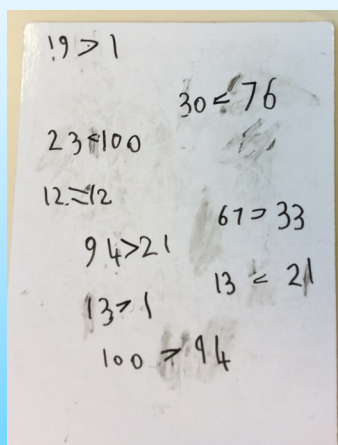 19 > 1
30 < 76
23 < 100
12 = 12
67 > 33
94 > 21
13 < 21
13 > 1
100 > 94